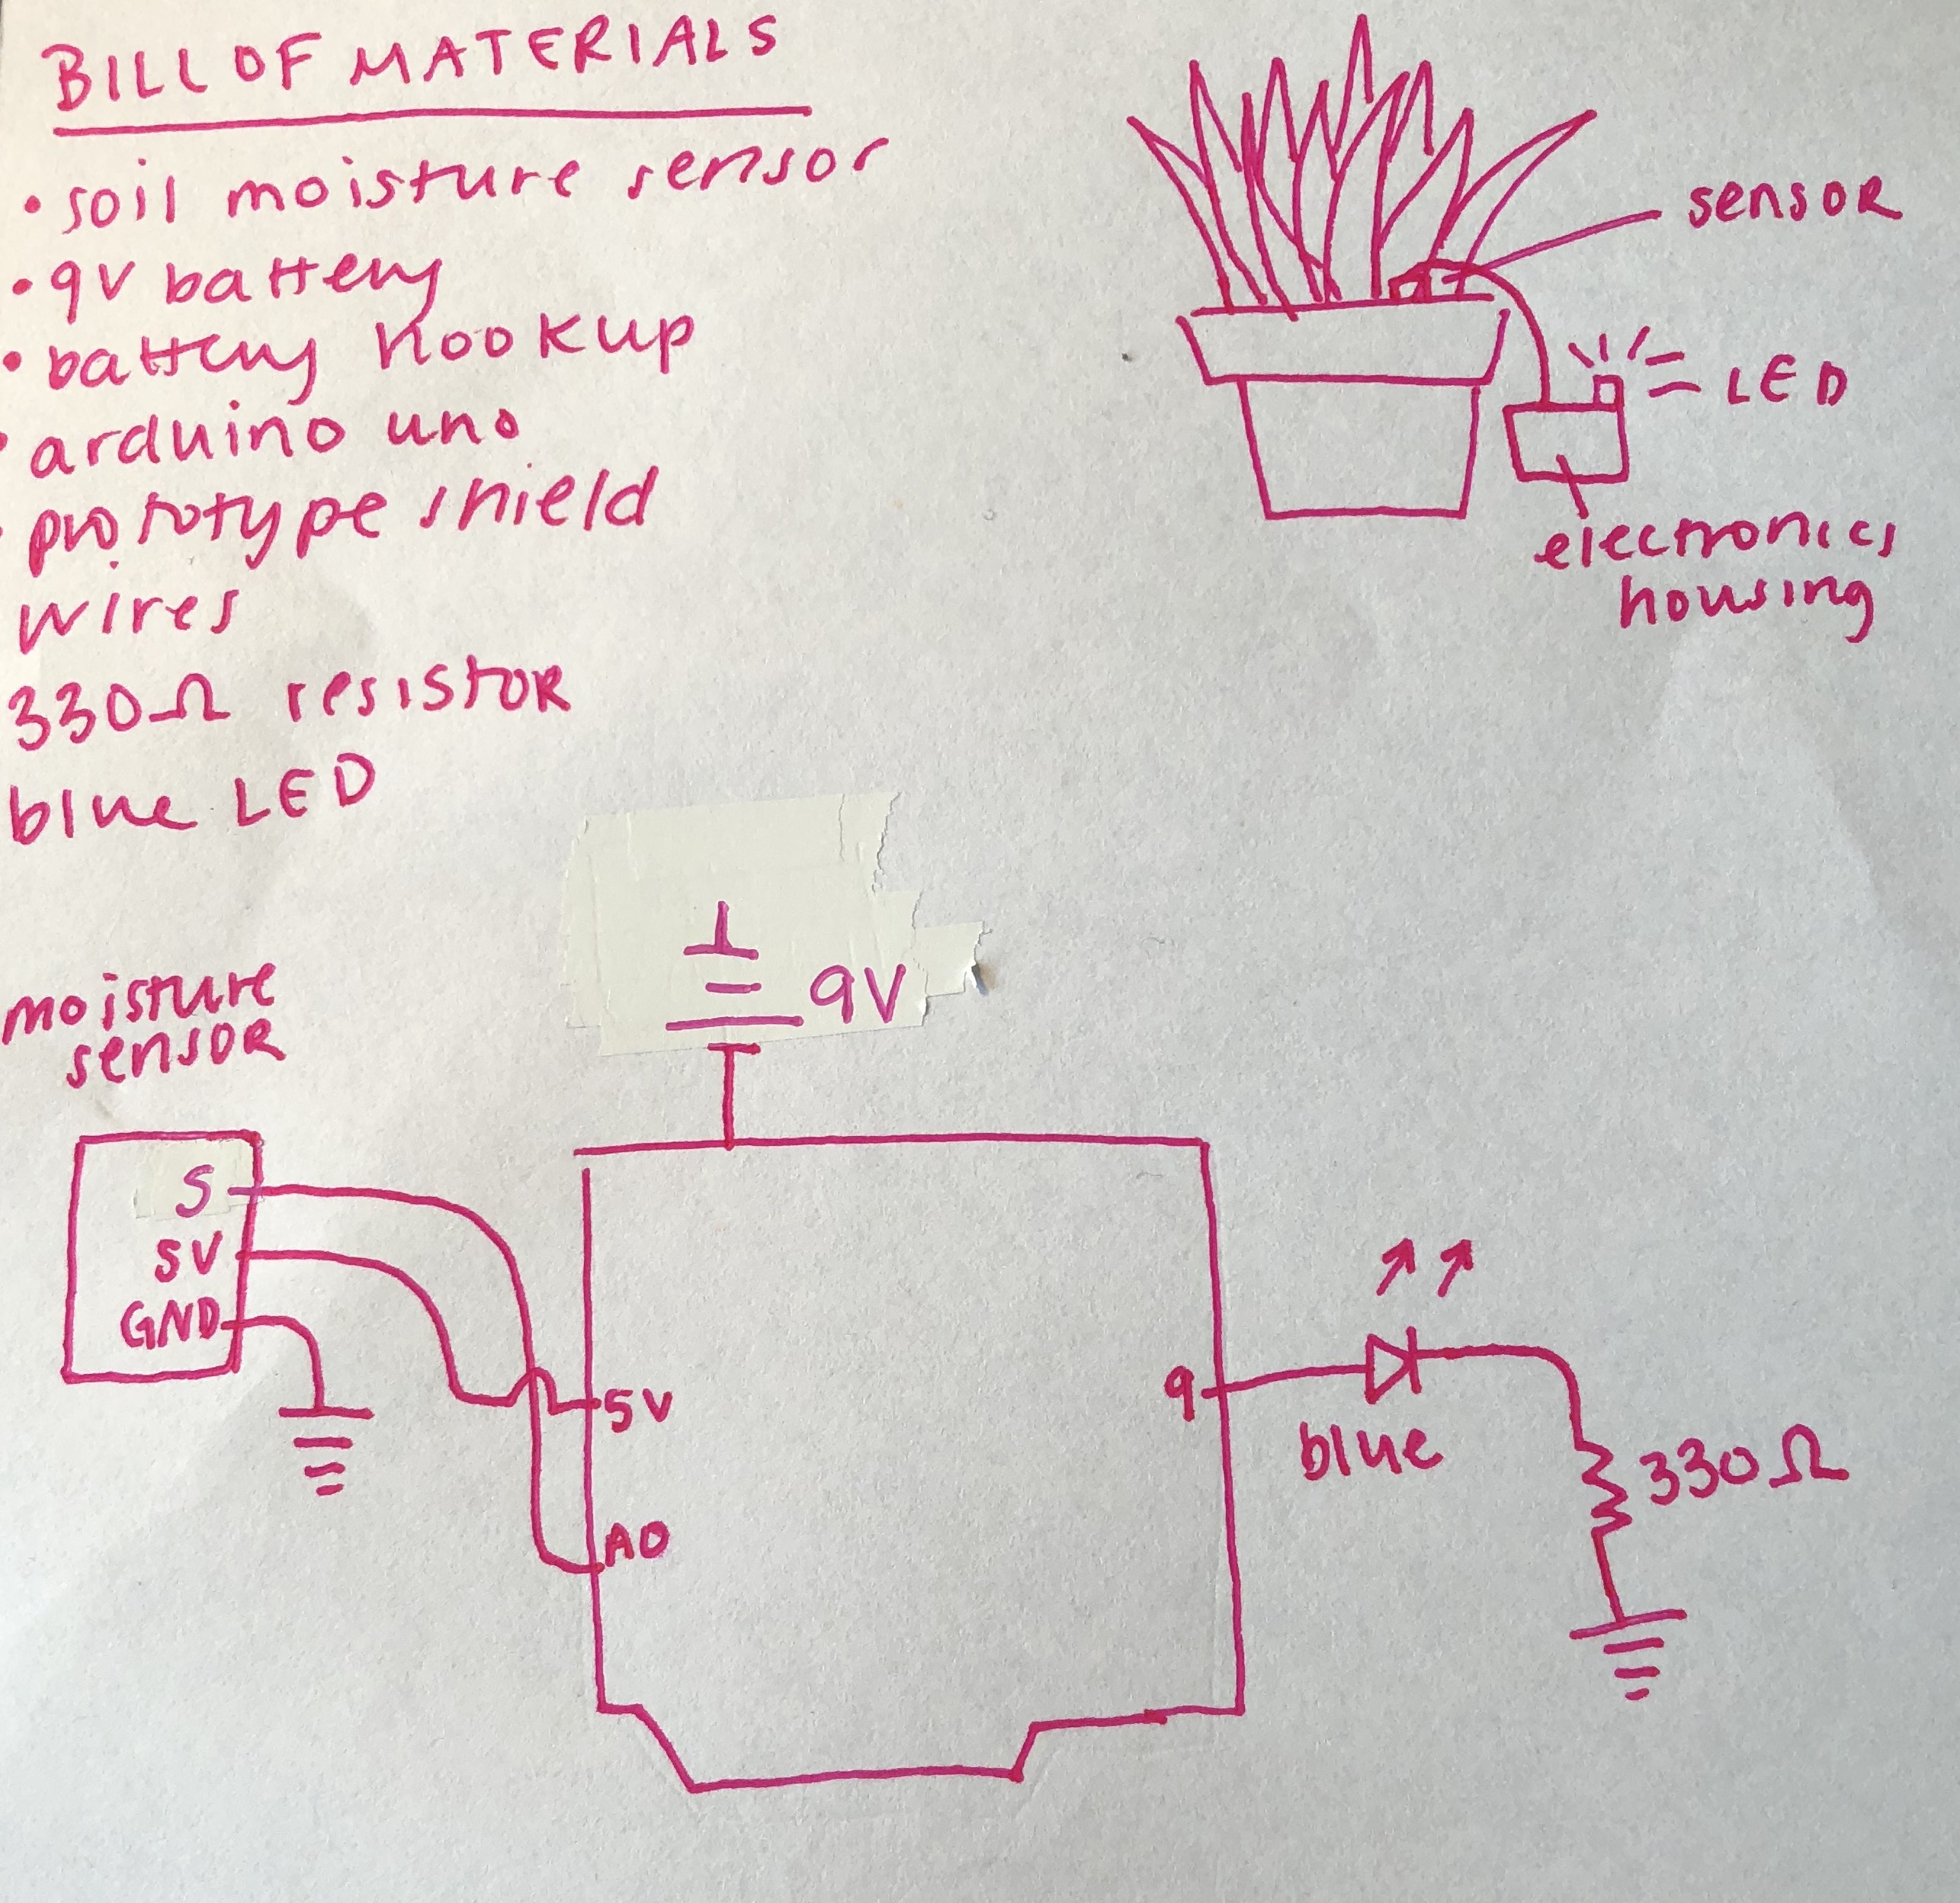 BILL OF MATERIALS
• soil moisture sensor
• 9V battery
• battery hookup
• arduino uno
• prototype shield
wires
330Ω resistor
blue LED
sensor
LED
electronics
housing
9V
moisture
sensor
S
5V
GND
5V
A0
9
blue
330Ω